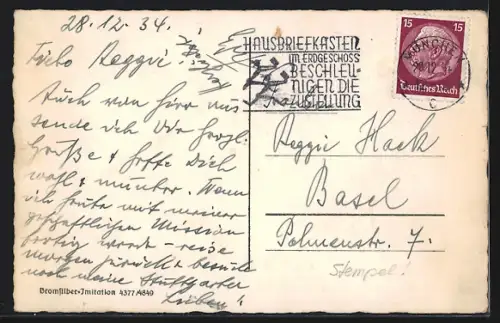 28.12.34.
Liebe Reggie!
Auch von hier aus
sende ich Dir herzl.
Grüße & hoffe Dich
wohl & munter. Wenn
ich heute mit meiner
geschäftlichen Mission
fertig werde - reise
morgen zurück & besuche
noch meine Stuttgarter
Lieben!
Bromsilber-Imitation 4377/4849
HAUSBRIEFKASTEN
IM ERDGESCHOSS
BESCHLEU-
NIGEN DIE
ZUSTELLUNG
MÜNCHEN
15 15
Deutsches Reich
Reggie Hack
Basel
Palmenstr. 7.
Stempel!